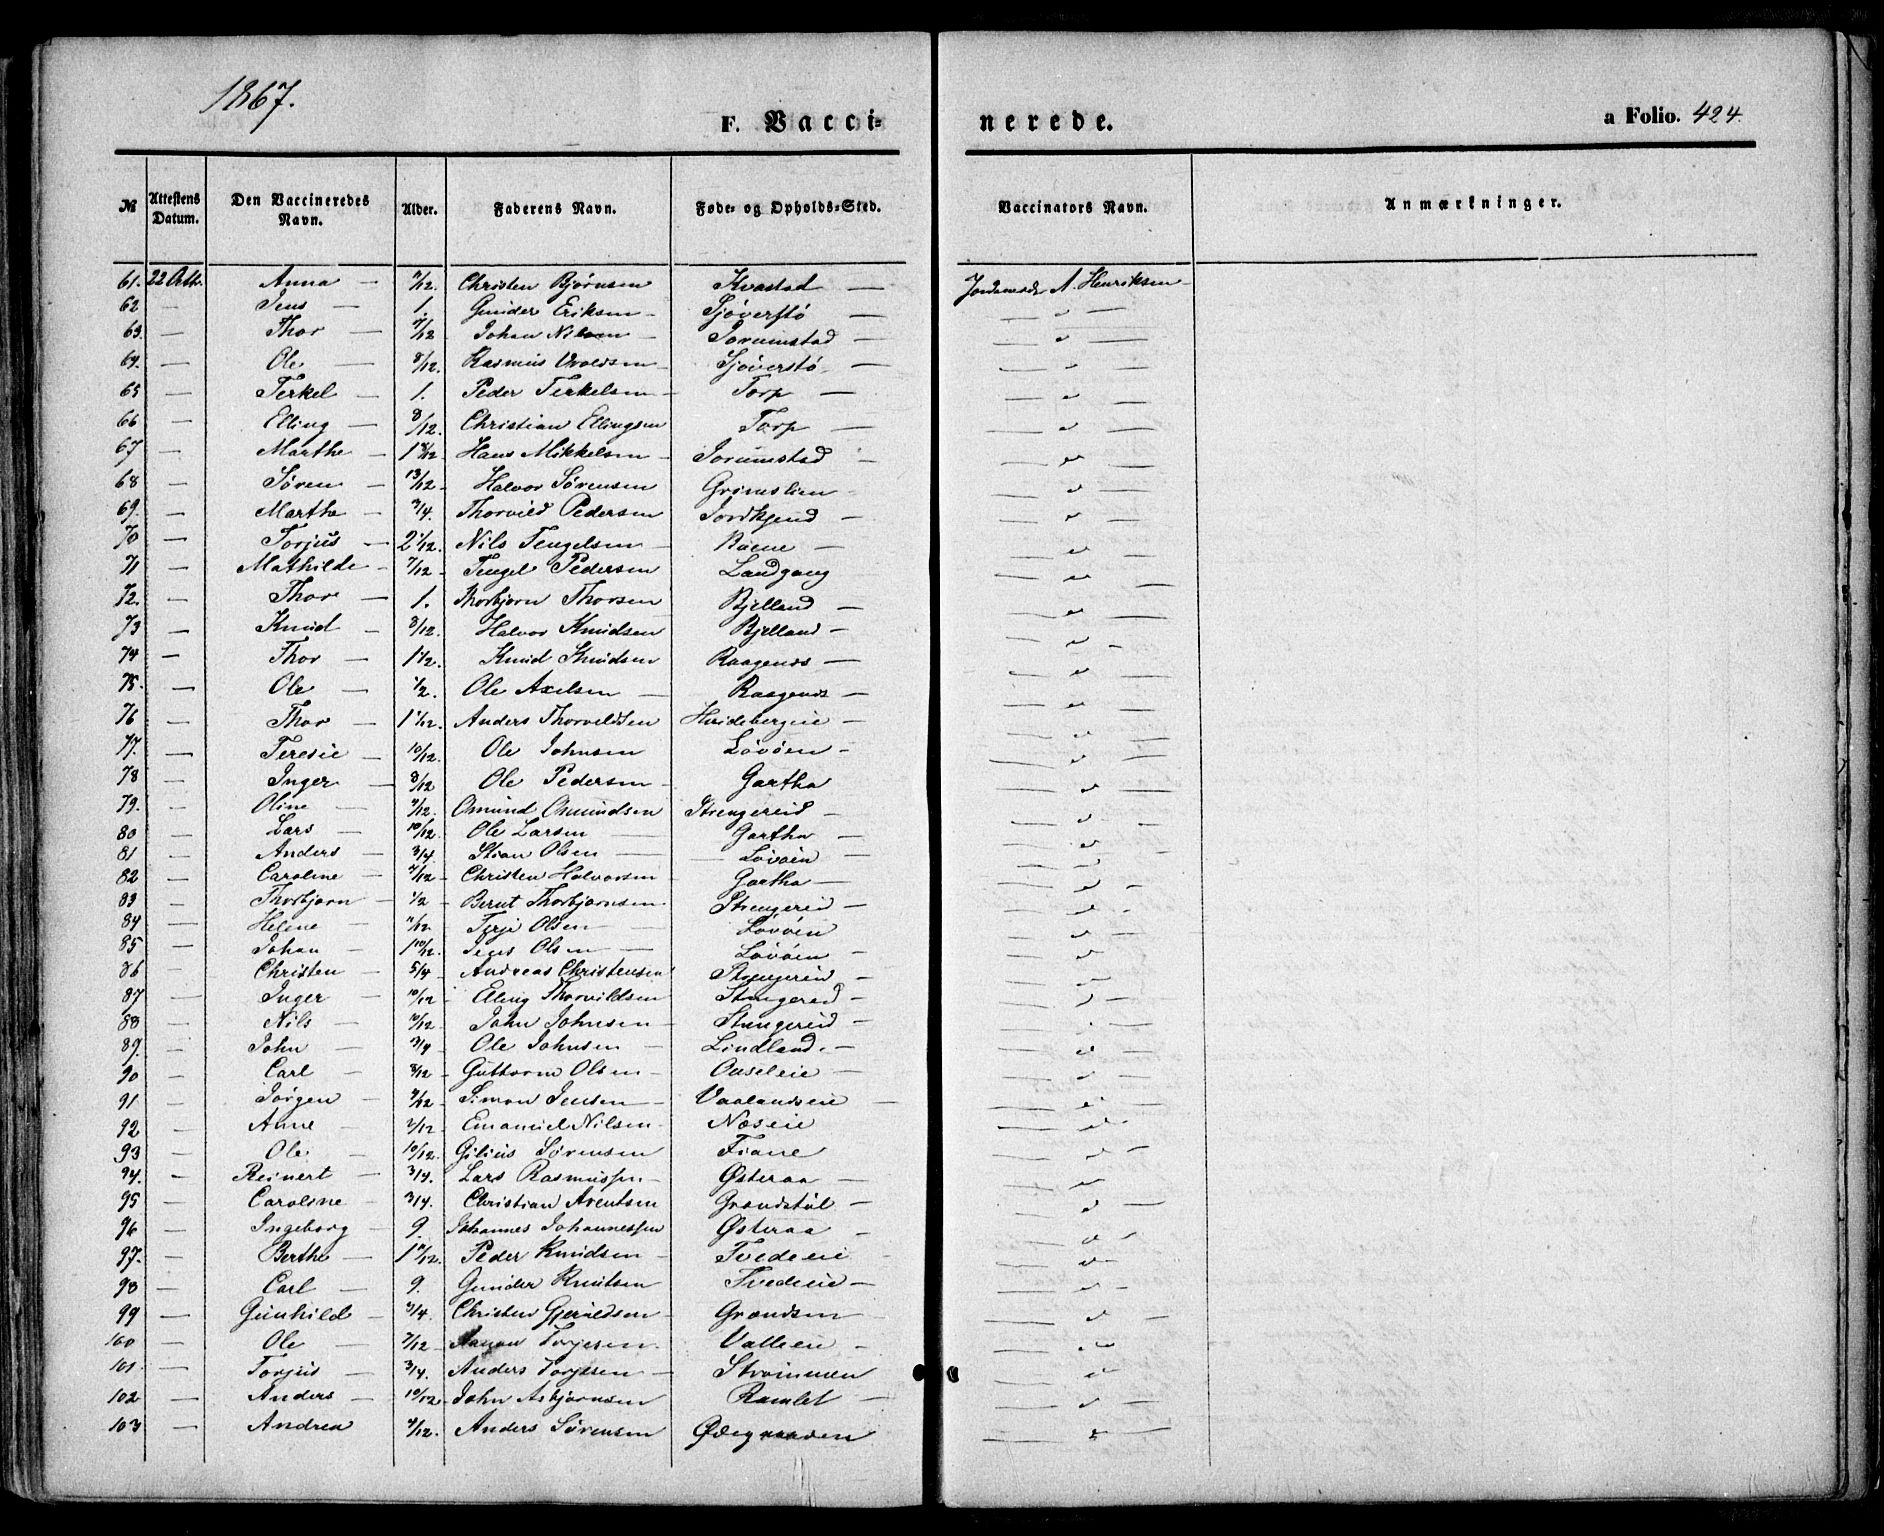 1867.
F. Vacci-
nerede.
a Folio. 424.
№ Attestens Datum. Den Vaccineredes Navn. Alder. Faderens Navn. Føde- og Opholds-Sted. Vaccinators Navn. Anmærkninger.
61. 22 Anna — Christen Bjørnsen Kvastad — Henriksen
62 — Jens — 1. Gunder Eriksen — Sjøverstø —
63. — Thor — 7/12 Johan Nilsen — Jorumstad —
64. — Ole — 8/12. Rasmus — Sjøverstø. —
65 — Terkel — 1. Peder Terkelsen — Torp —
66 — Elling — 8/12. Christian Ellingsen Torp —
67 — Marthe — Hans Mikkelsen — Jorumstad —
68 — Søren — 13/12 Halvor Sørensen Grimslien —
69. — Marthe — 3/4. Thorvild Pedersen Jordkjend —
70 — Torjus — 2 1/12. Nils Tengelsen — —
71 — Mathilde — 7/12 — Tengel Pedersen Landgang
72. — Thor — 1. Thorbjørn Thorsen Bjelland —
73 — Knud — 8/12. Halvor Knudsen Bjelland —
74 — Thor — 1 1/2. Knud Knudsen Raagenes —
75. — Ole — 1/2. Ole Axelsen — Raagends —
76 — Thor — Anders Thorvildsen —
77. — Teresie — 10/12. Ole Johnsen Løvøen —
78 — Inger — 8/12 Ole Pedersen Gartha
79. — Oline — Omund Omundsen Strengereid —
80 — Lars — 10/12. Ole Larsen — Gartha —
81 — Anders — 3/4. Stian Olsen — — Løvøen —
82 — Caroline — Christen Halvorsen Gartha —
83 — Thorbjørn — 1/2 — Bernt Thorbjørnsen Strengereid —
84 — Helene — Terje Olsen — Løvøen
85 — Johan — 1 10/12. Olsen — Løvøen —
86 — Christen — 5/4 — Andreas Christensen Strengereid —
87 — Inger — 10/12 — Elling Thorvildsen Strengereid —
88 — Nils — 10/12. John Johnsen — Strengereid —
89. — John — 3/4 Ole Johnsen — Lindland. —
90 — Carl — 8/12 — Guttorm Olsen — —
91 — Jørgen — Simon Jensen — Vaalandseie —
92 — Anne — Emanuel Nilsen — Næseie
93 — Ole — 10/12. Gilius Sørensen Fiane
94. — Reinert — 3/4. Lars Rasmussen — Østeraa —
95 — Caroline — 3/4. Christian Arentsen Grandstøl —
96 — Ingeborg — 9. Johannes Johannessen Østeraa —
97. — Berthe — Peder Knudsen — Tvedeie —
98 — Carl — 9. Gunder Knutsen Tvedeie —
99 — Gunhild — 3/4. Christen Gjeruldsen —
100 — Ole — 7/12 Torjesen. Valleeie —
101. — Torjus — 3/4. Anders Torjesen — Strømmen
102 — Anders — 10/12 — John Asbjørnsen Ramlet —
103 — Andrea Anders Sørensen Ødegaarden